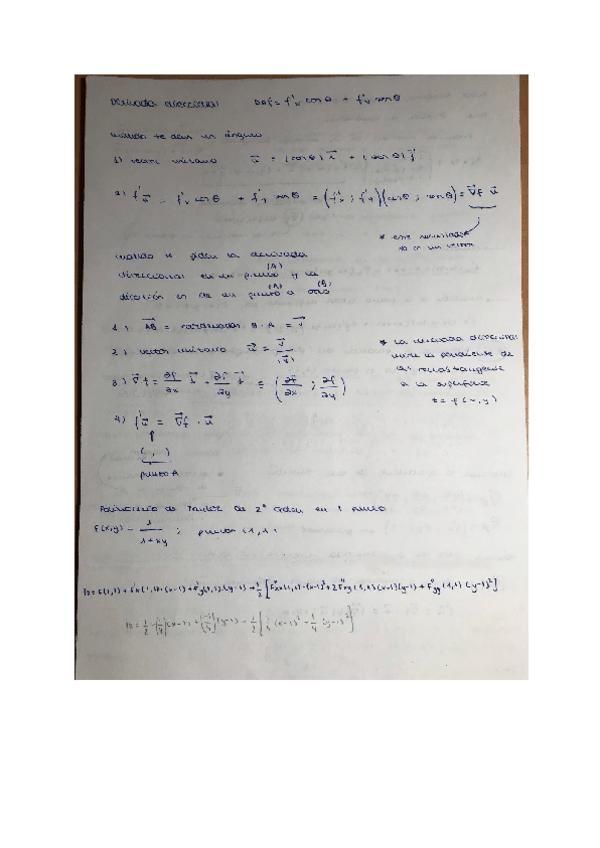 Derivada direccional D_θf = f'x cos θ + f'y sen θ
cuando te dan un ángulo
1) vector unitario u⃗ = (cos θ) i⃗ + (sen θ) j⃗
2) f'u⃗ = f'x cos θ + f'y sen θ = (f'x ; f'y)(cos θ ; sen θ) = ∇⃗f u⃗
* este resultado
no es un vector
cuando te piden la derivada
direccional en un punto (A) y la
dirección es de un punto (A) a otro (B)
1.) AB⃗ = coordenadas B - A = v⃗
2) vector unitario u⃗ = v⃗ / |v⃗|
3) ∇⃗f = ∂f/∂x i⃗ + ∂f/∂y j⃗ = (∂f/∂x ; ∂f/∂y)
4) f'u⃗ = ∇⃗f · u⃗
p
( , )
punto A
* La derivada direccional
mide la pendiente de
las rectas tangente
a la superficie
z = f(x,y)
Polinomio de Taylor de 2º orden en 1 punto
f(x,y) = 1/(1+xy) ; punto (1,1)
P2 = f(1,1) + f'x(1,1)·(x-1) + f'y(1,1)·(y-1) + 1/2 [f''xx(1,1)·(x-1)² + 2f''xy(1,1)(x-1)(y-1) + f''yy(1,1)(y-1)²]